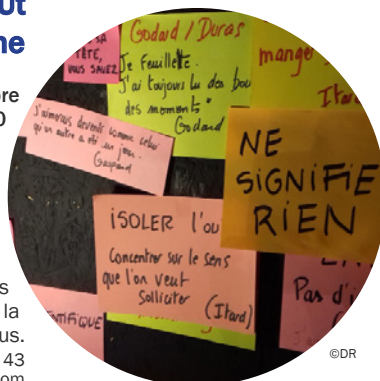 ut
ne
re
0
s
la
us.
43
om
SA
TÊTE,
VOUS SAVEZ
Godard / Duras
Je feuillette.
J'ai toujours lu des bou
des moments"
Godard
manger
Itard
J'aimerais devenir comme celui
qu'un autre a été un jour.
Gaspard
NE
SiGNiFiE
RiEN
iSOLER l'ou
Concentrer sur le sens
que l'on veut
Solliciter
(Itard)
Pas d'i
ENTiFiQUE
©DR